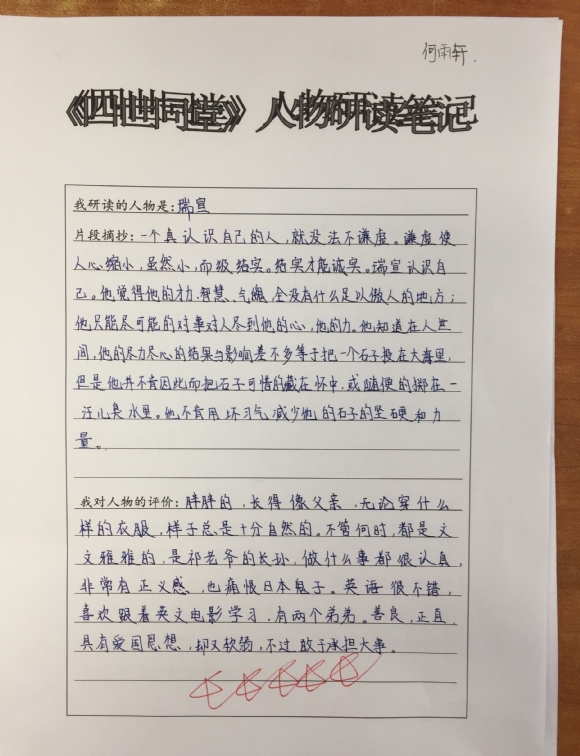 何雨轩.
《四世同堂》人物研读笔记
我研读的人物是:瑞宣
片段摘抄:一个真认识自己的人,就没法不谦虚。谦虚使
人心缩小,虽然小,而极结实。结实才能诚实。瑞宣认识自
己。他觉得他的才力,智慧,气魄,全没有什么足以傲人的地方;
他只能尽可能的对事对人尽到他的心,他的力。他知道在人世
间,他的尽力尽心的结果与影响差不多等于把一个石子投在大海里,
但是他并不肯因此而把石子可惜的藏在怀中,或随便的掷在一
汪儿臭水里。他不肯用坏习气减少他的石子的坚硬和力
量。
我对人物的评价:胖胖的,长得像父亲,无论穿什么
样的衣服,样子总是十分自然的。不管何时,都是文
文雅雅的,是祁老爷的长孙,做什么事都很认真,
非常有正义感,也痛恨日本鬼子。英语很不错,
喜欢跟着英文电影学习,有两个弟弟。善良,正直,
具有爱国思想,却又软弱,不过敢于承担大事。